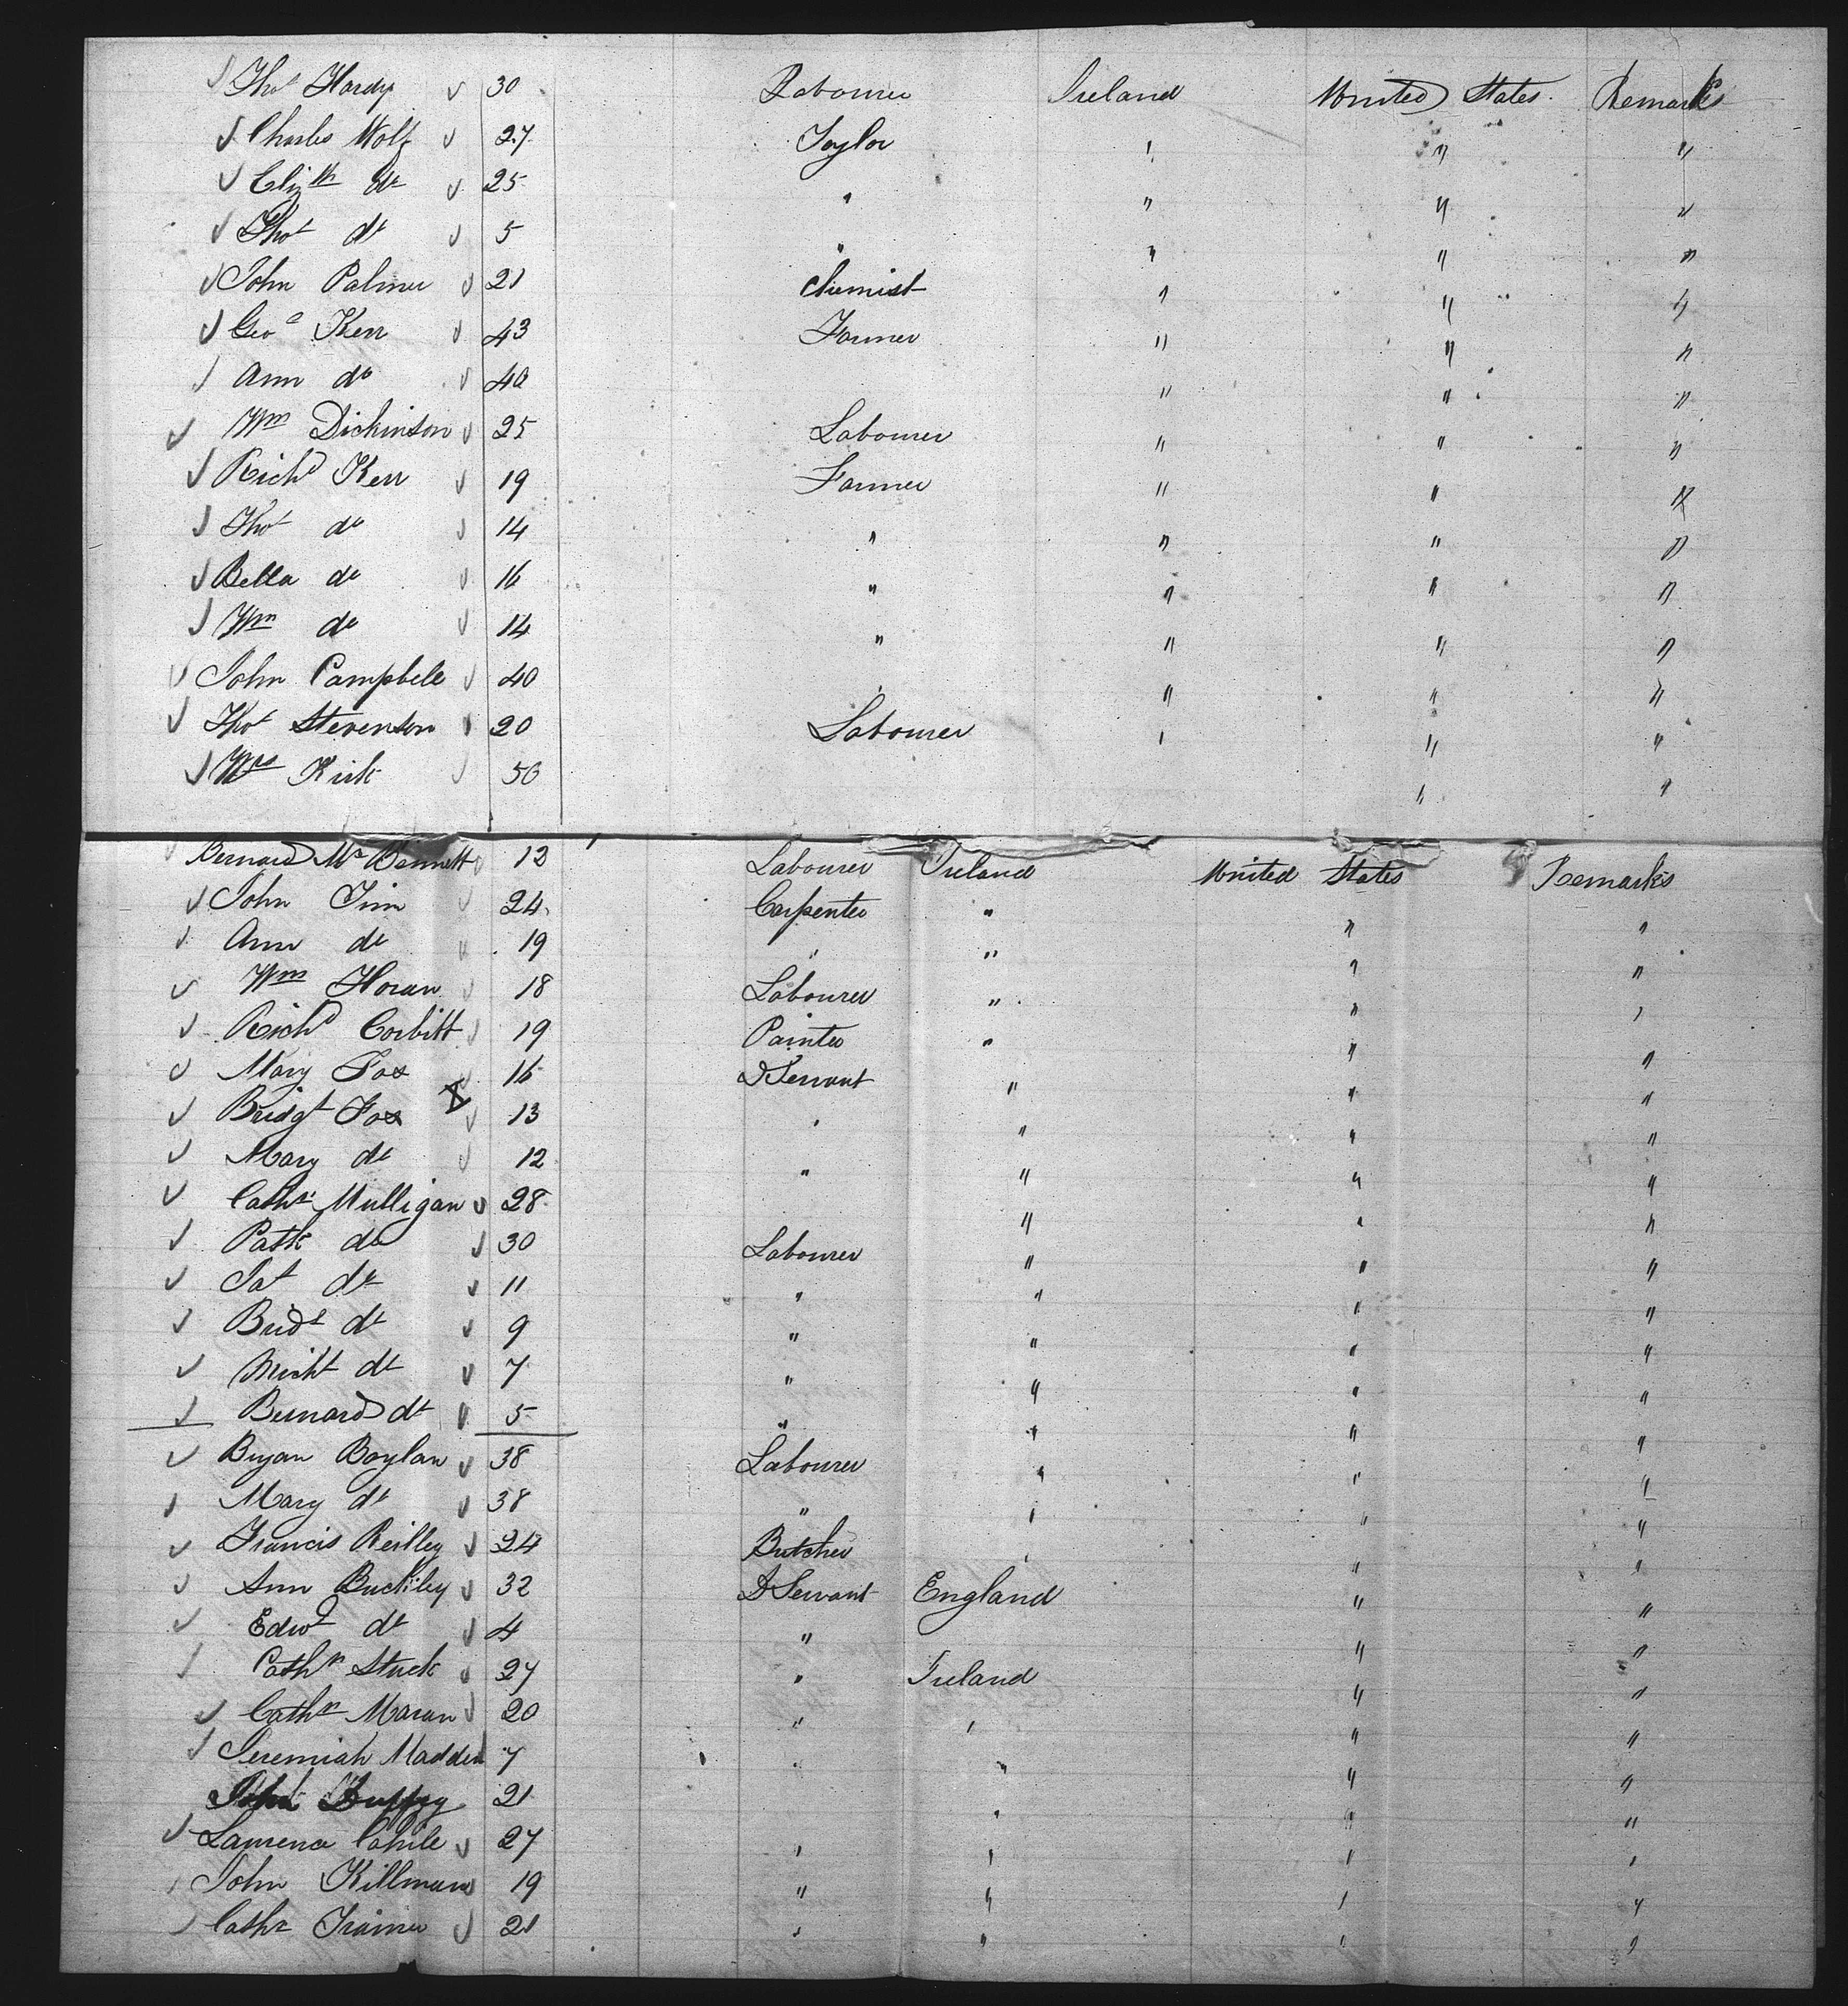 Thos Hardy 30 Labourer Ireland United States Remarks
Charles Wolf 27 Taylor " " "
Elizth do 25 " " " "
Thos do 5 " " " "
John Palmer 21 Chemist " " "
Geoe Kerr 43 Farmer " " "
Ann do 40 " " "
Wm Dickinson 25 Labourer " " "
Richd Kerr 19 Farmer " " "
Thos do 14 " " " "
Bella do 16 " " " "
Wm do 14 " " " "
John Campbell 40 " " " "
Thos Stevenson 20 Labourer " " "
Kirk 50 " "
Bernard Mc 12 Labourer Ireland United States Remarks
John 24 Carpenter " " "
Ann do 19 " " " "
Wm Horan 18 Labourer " " "
Richd Corbitt 19 Painter " " "
Mary Fox 16 D Servant " " "
Bridgt Fox X 13 " " " "
Mary do 12 " " " "
Cathn Mulligan 28 " " "
Patk do 30 Labourer " " "
Pat do 11 " " " "
Bridt do 9 " " " "
Micht do 7 " " " "
Bernard do 5 " " " "
Bryan Boylan 38 Labourer " " "
Mary do 38 " " " "
Francis Reilley 24 Butcher " " "
Ann Buckley 32 D Servant England " "
Edwd do 4 " " "
Cathn Stuck 27 " Ireland " "
Cathn Maran 20 " " " "
Jeremiah Madden 7 " " " "
John Duffey 21 " " "
Laurence Cahile 27 " " " "
John Killman 19 " " " "
Cathn Trainer 21 " " " "